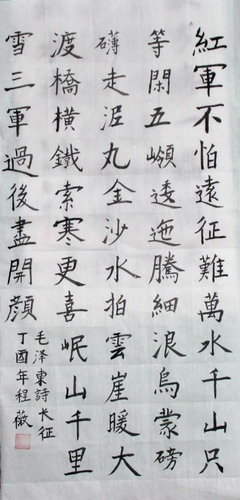 紅軍不怕遠征難萬水千山只
等閑五嶺逶迤騰細浪烏蒙磅
礴走泥丸金沙水拍雲崖暖大
渡橋橫鐵索寒更喜岷山千里
雪三軍過後盡開顏
毛泽東詩长征
丁酉年程薇